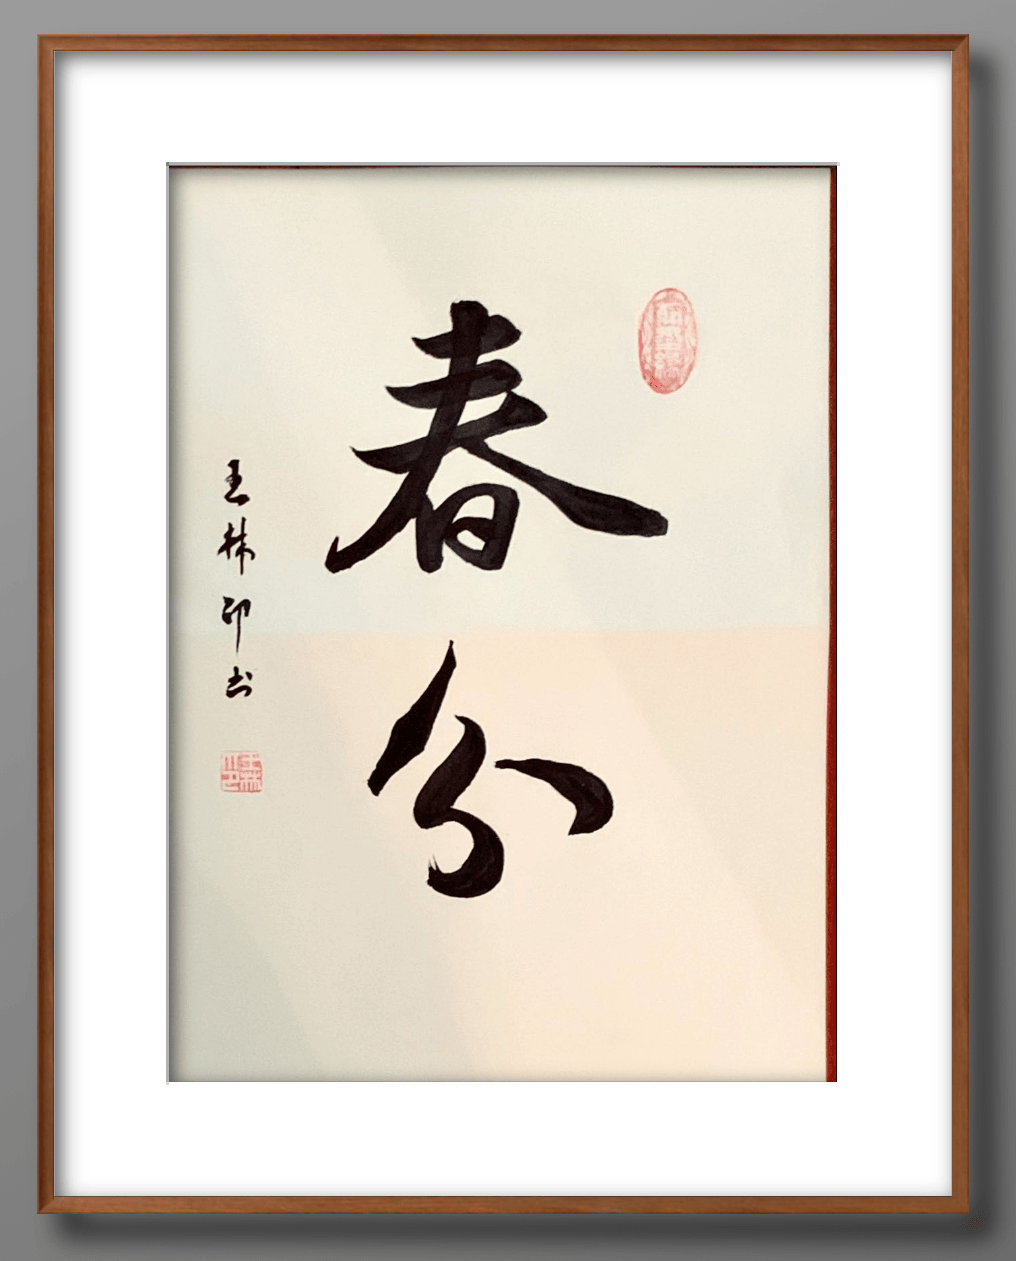 春分
王林印书